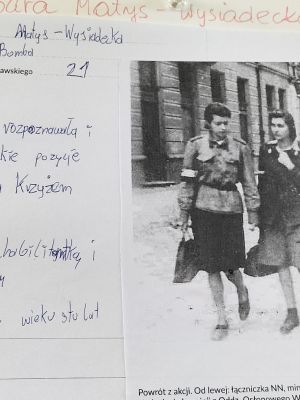 bara Matys - Wysiadecka
Matys - Wysiadecka
Bomba
awskiego 21
rozpoznawała i
kie pozycje
Krzyżem
habilitantką i
wieku stu lat
Powrót z akcji. Od lewej: łączniczka NN, min